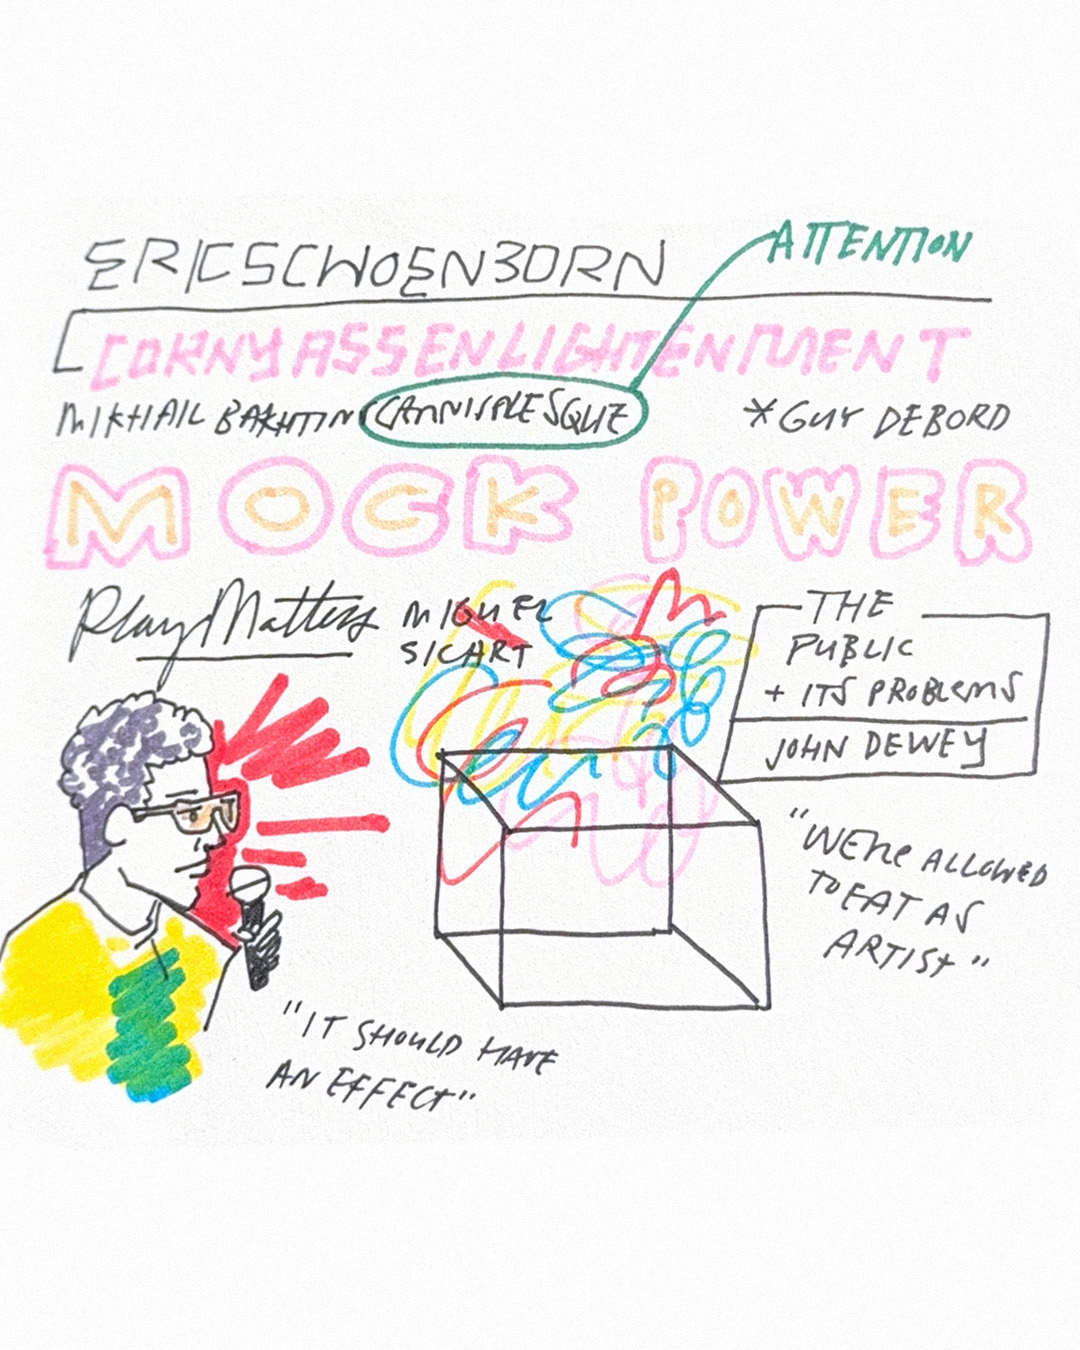 ERICSCHOENBORN
ATTENTION
CORNY ASS ENLIGHTENMENT
MIKHAIL BAKHTIN CARNIVALESQUE
*GUY DEBORD
MOCK POWER
Play Matters
MIGUEL
SICART
THE
PUBLIC
+ ITS PROBLEMS
JOHN DEWEY
"WE'RE ALLOWED
TO EAT AS
ARTIST"
"IT SHOULD HAVE
AN EFFECT"